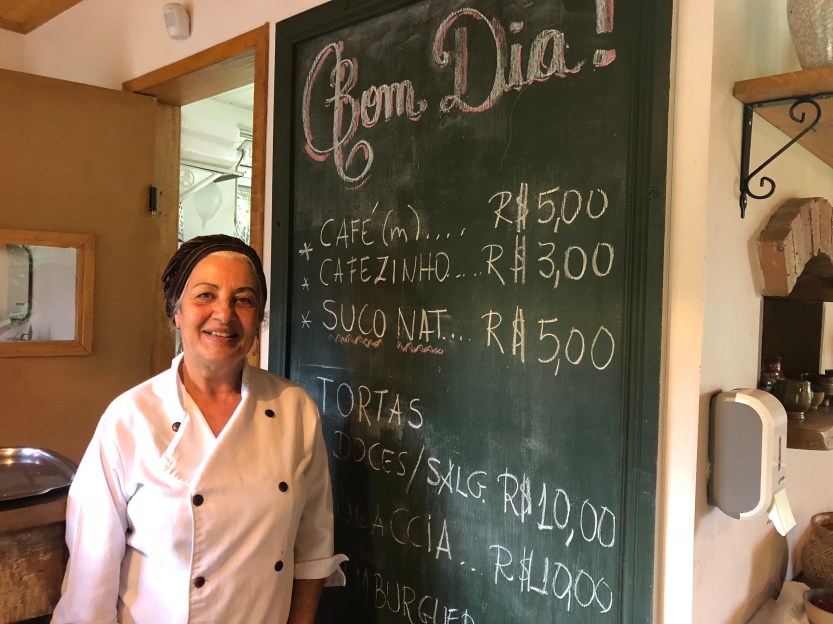 Bom Dia!
* CAFÉ (m).... R$ 5,00
* CAFEZINHO.... R$ 3,00
* SUCO NAT... R$ 5,00
TORTAS
DOCES/SALG. R$10,00
OCACCIA... R$10,00
AMBURGUER